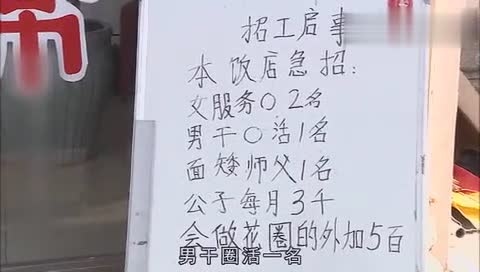 招工启事
本饭店急招：
女服务〇2名
男干〇活1名
面矮师父1名
公子每月3千
会做花圈的外加5百
男干圈活一名